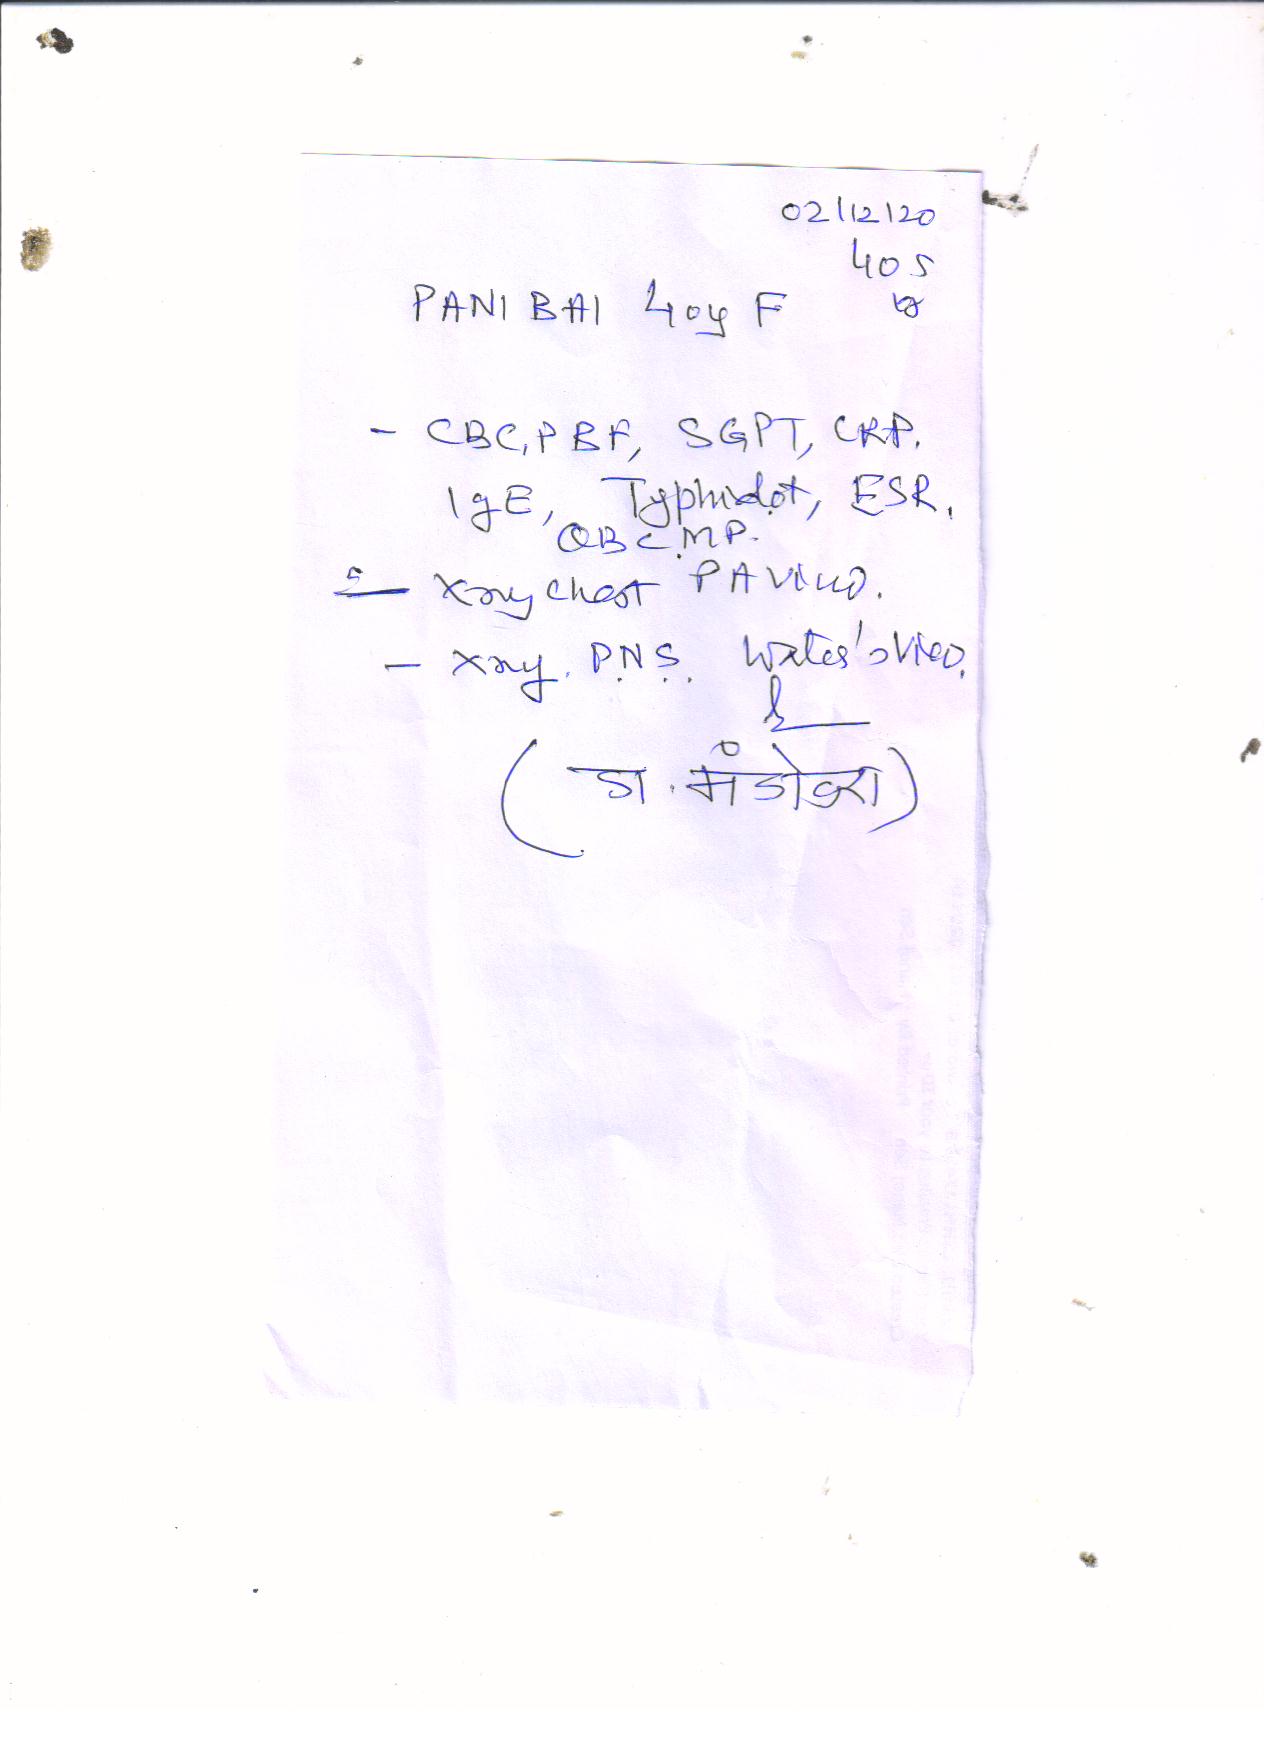 02/12/20
405
PANI BAI 40y F
- CBC, PBF, SGPT, CRP,
IgE, Typhidot, ESR,
QBC MP.
- Xray chest PA view.
- Xray. P.N.S. Water's View.
(डा. मंडोव्रा)